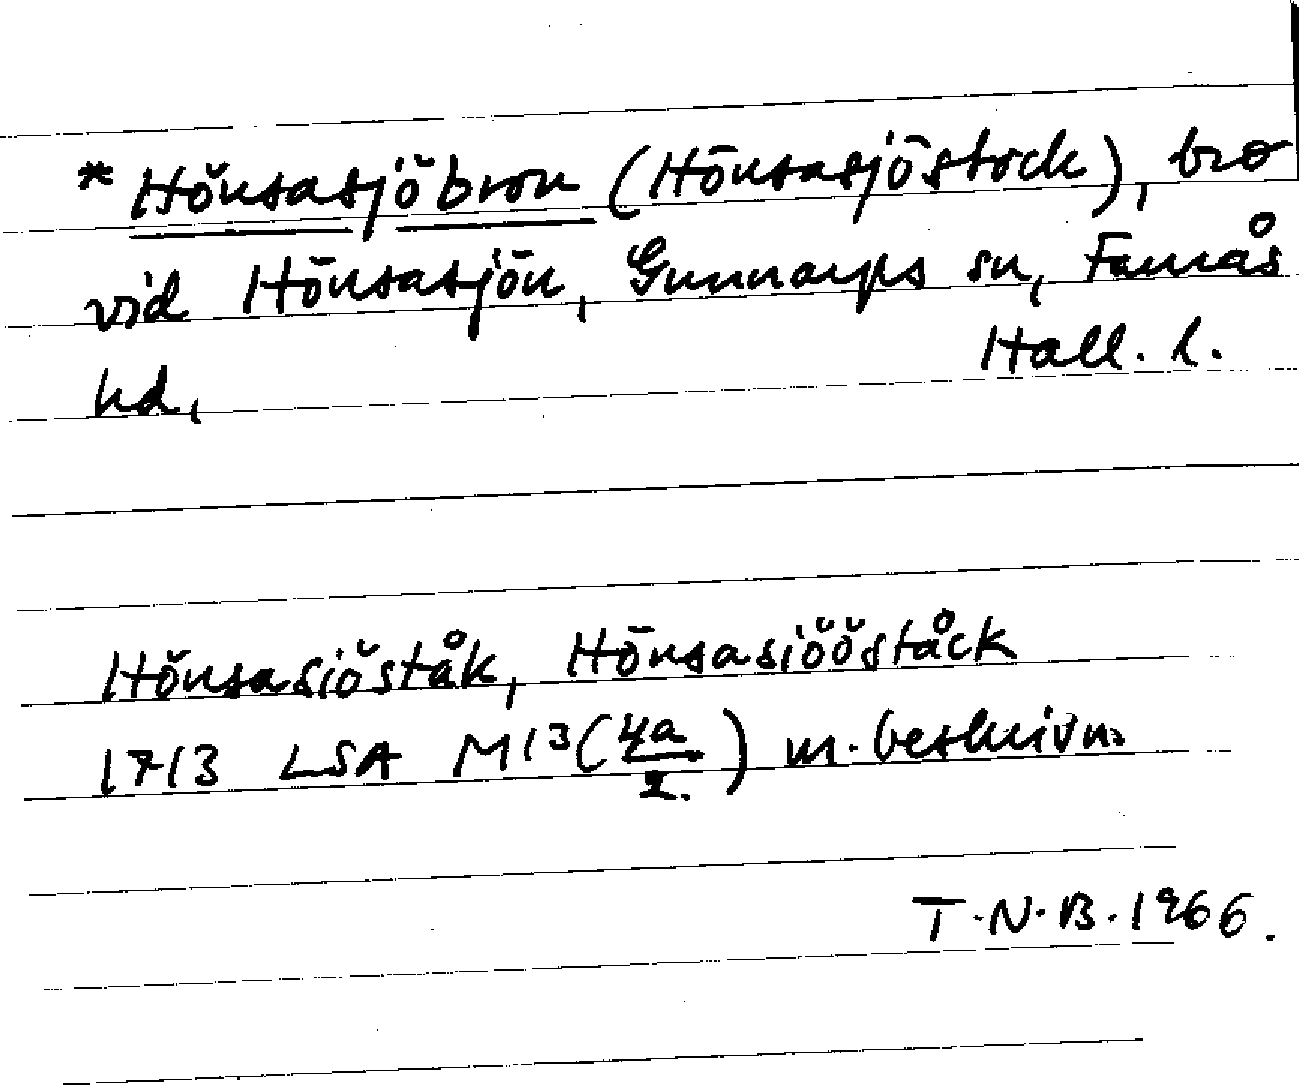 * Hönsasjöbron (Hönsasjöstock), bro
vid Hönsasjön, Gunnarps sn, Faurås
hd, Hall. l.
Hönsasiöståk, Hönsasiööståck
1713 LSA M13 (4a/2.) m. beskrivn.
T.N.B. 1966.